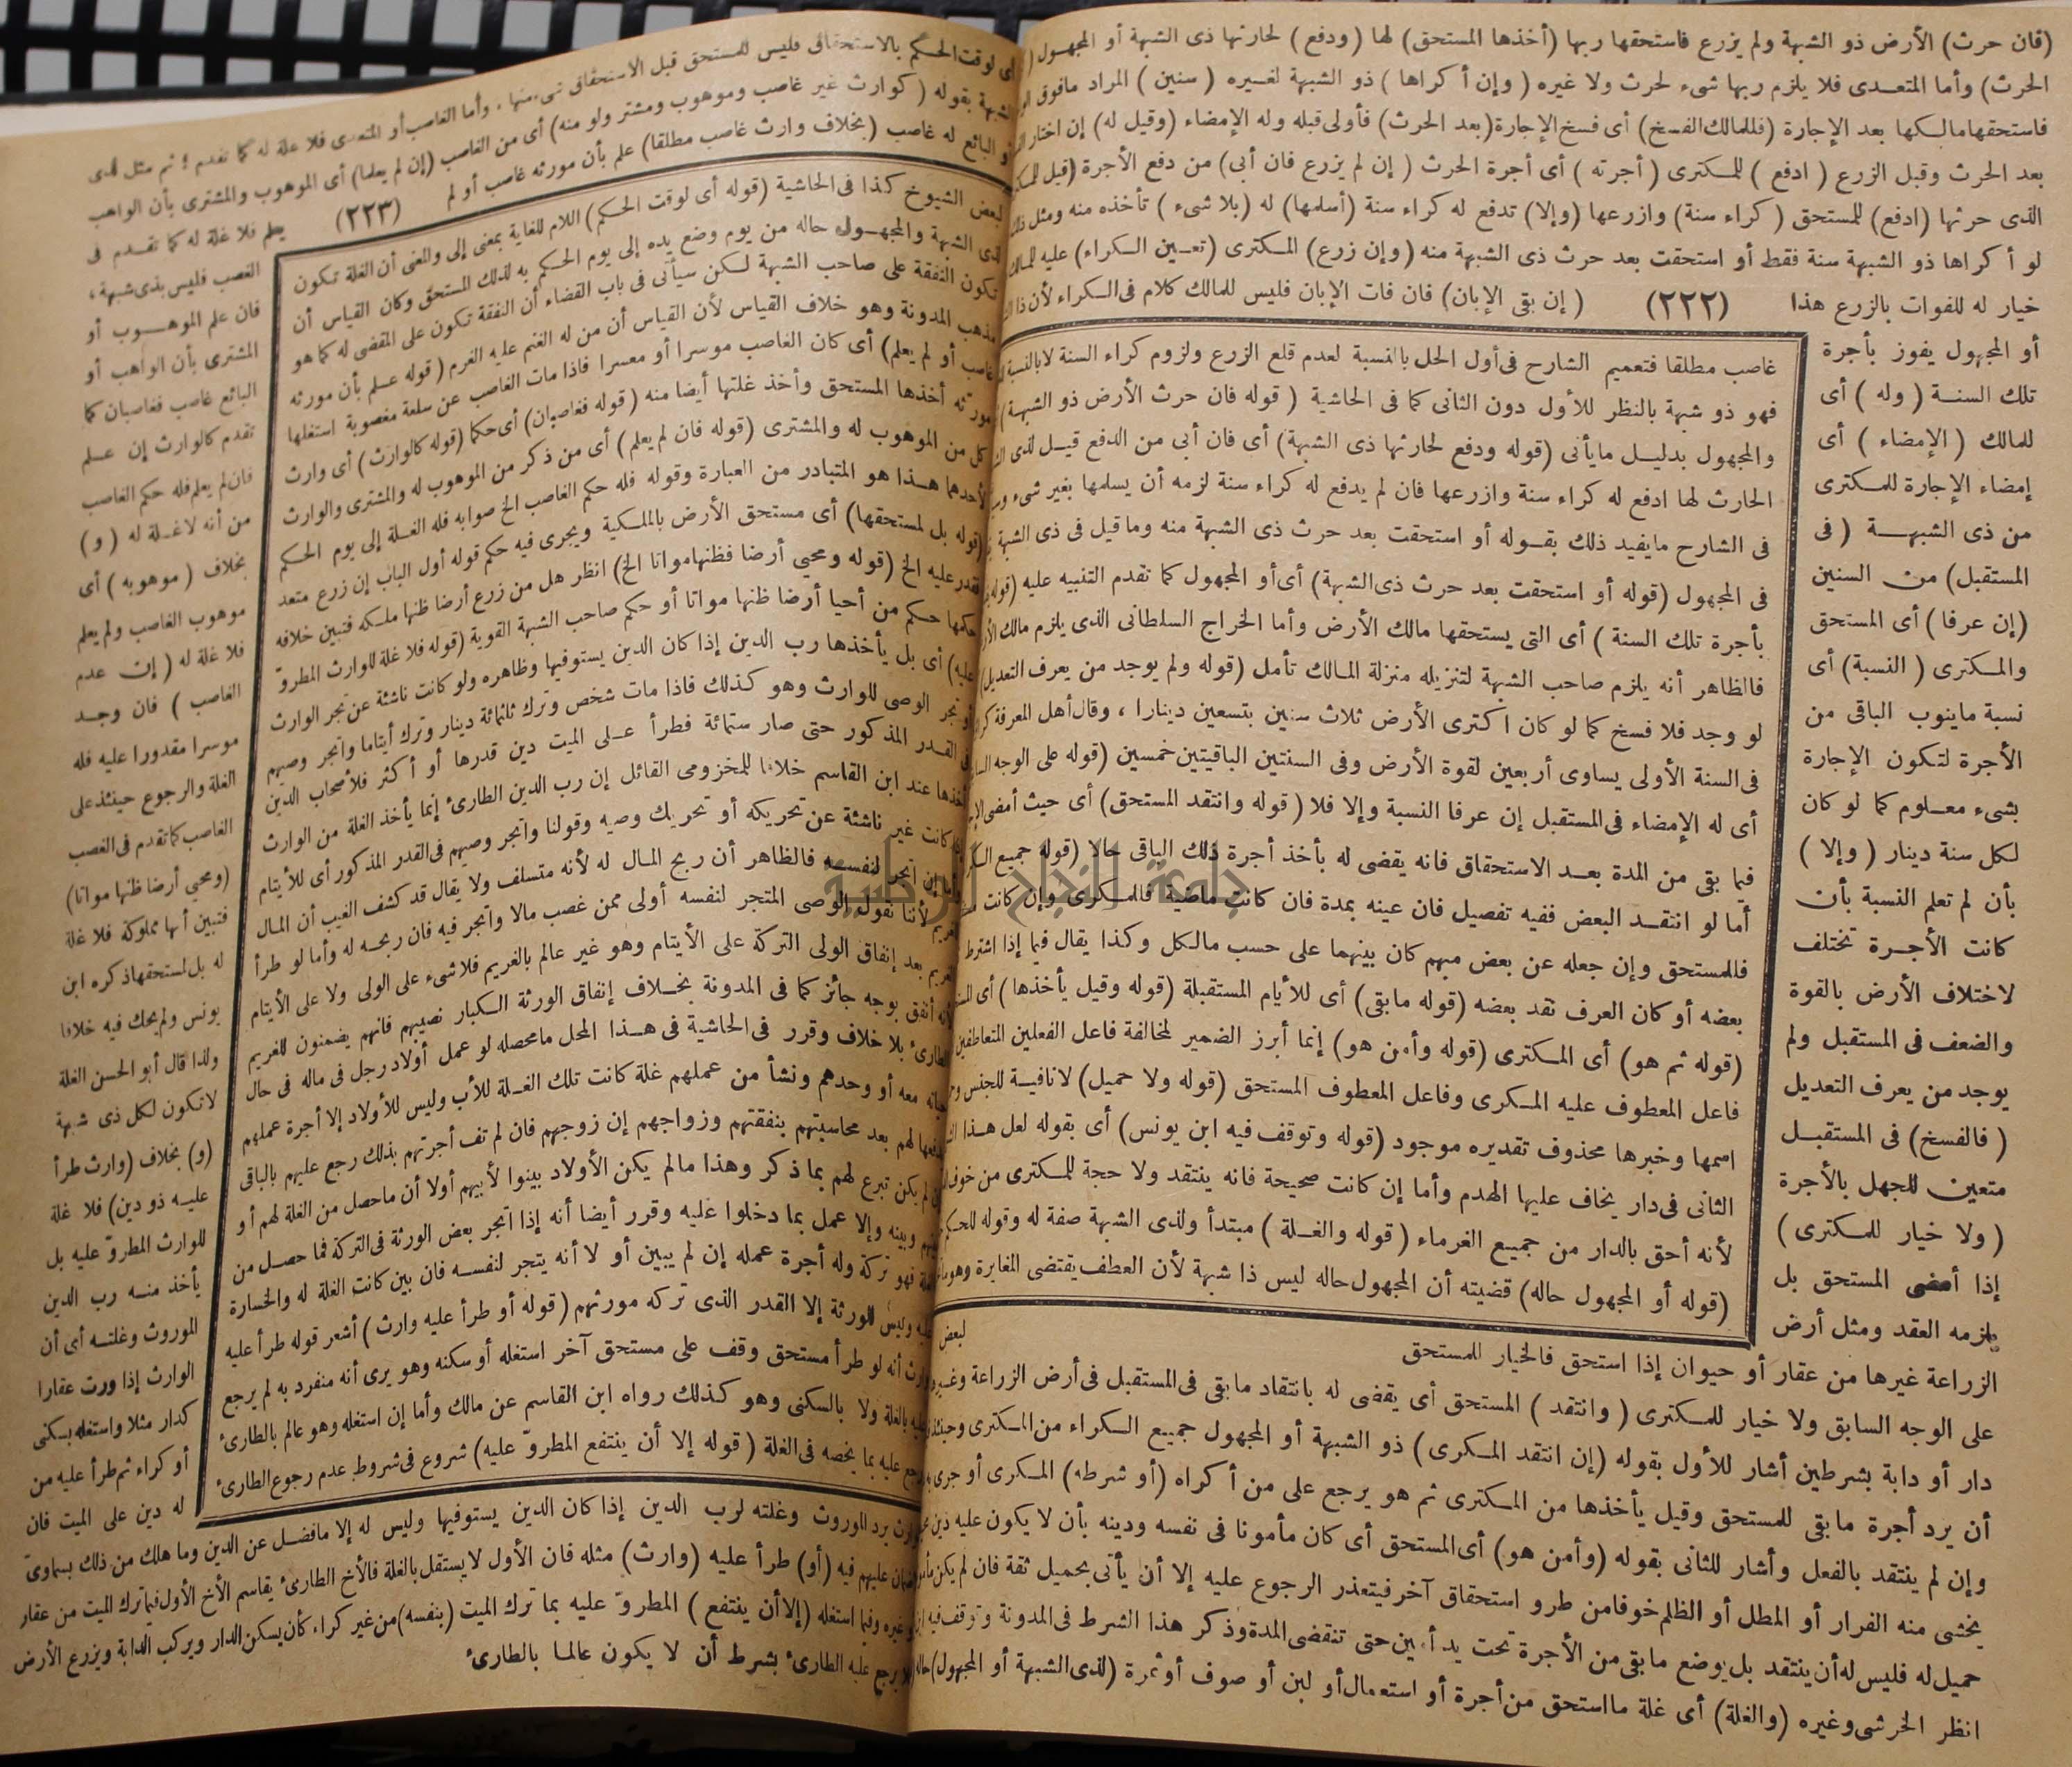 (فان حرث) الأرض ذو الشبهة ولم يزرع فاستحقها ربها (أخذها المستحق) لها (ودفع) لحارثها ذى الشبهة أو المجهول
الحرث) وأما المتعدى فلا يلزم ربها شىء لحرث ولا غيره (وإن أكراها) ذو الشبهة لغيره (سنين) المراد مافوق
فاستحقها مالكها بعد الإجارة (فللمالك الفسخ) أى فسخ الإجارة (بعد الحرث) فأولى قبله وله الإمضاء (وقيل له) إن اختار
بعد الحرث وقبل الزرع (ادفع) للمكترى (أجرته) أى أجرة الحرث (إن لم يزرع فان أبى) من دفع الأجرة (قيل
الذى حرثها (ادفع) للمستحق (كراء سنة) وازرعها (وإلا) تدفع له كراء سنة (أسلمها) له (بلا شىء) تأخذه منه ومثل ذلك
لو أكراها ذو الشبهة سنة فقط أو استحقت بعد حرث ذى الشبهة منه (وإن زرع) المكترى (تعين الكراء) عليه للمالك
خيار له للفوات بالزرع هذا (٢٢٢) (إن بقى الإبان) فان فات الإبان فليس للمالك كلام فى الكراء لأن ذا
أو المجهول يفوز بأجرة
تلك السنة (وله) أى
للمالك (الإمضاء) أى
إمضاء الإجارة للمكترى
من ذى الشبهة (فى
المستقبل) من السنين
(إن عرفا) أى المستحق
والمكترى (النسبة) أى
نسبة ماينوب الباقى من
الأجرة لتكون الإجارة
بشىء معلوم كما لو كان
لكل سنة دينار (وإلا)
بأن لم تعلم النسبة بأن
كانت الأجرة تختلف
لاختلاف الأرض بالقوة
والضعف فى المستقبل ولم
يوجد من يعرف التعديل
(فالفسخ) فى المستقبل
متعين للجهل بالأجرة
(ولا خيار للمكترى)
إذا أمضى المستحق بل
يلزمه العقد ومثل أرض
غاصب مطلقا فتعميم الشارح فى أول الحل بالنسبة لعدم قلع الزرع ولزوم كراء السنة لا بالنسبة
فهو ذو شبهة بالنظر للأول دون الثانى كما فى الحاشية (قوله فان حرث الأرض ذو الشبهة)
والمجهول بدليل مايأتى (قوله ودفع لحارثها ذى الشبهة) أى فان أبى من الدفع قيل لذى
الحارث لها ادفع له كراء سنة وازرعها فان لم يدفع له كراء سنة لزمه أن يسلمها بغير شىء
فى الشارح مايفيد ذلك بقوله أو استحقت بعد حرث ذى الشبهة منه وما قيل فى ذى الشبهة
فى المجهول (قوله أو استحقت بعد حرث ذى الشبهة) أى أو المجهول كما تقدم التنبيه عليه (قوله
بأجرة تلك السنة) أى التى يستحقها مالك الأرض وأما الخراج السلطانى الذى يلزم مالك
فالظاهر أنه يلزم صاحب الشبهة لتنزيله منزلة المالك تأمل (قوله ولم يوجد من يعرف التعديل)
لو وجد فلا فسخ كما لو كان اكترى الأرض ثلاث سنين بتسعين دينارا ، وقال أهل المعرفة
فى السنة الأولى يساوى أربعين لقوة الأرض وفى السنتين الباقيتين خمسين (قوله على الوجه
أى له الإمضاء فى المستقبل إن عرفا النسبة وإلا فلا (قوله وانتقد المستحق) أى حيث أمضى
فيما بقى من المدة بعد الاستحقاق فانه يقضى له بأخذ أجرة ذلك الباقى حالا (قوله جميع
أما لو انتقد البعض ففيه تفصيل فان عينه بمدة فان كانت ماضية فللمكرى وإن كانت
فللمستحق وإن جعله عن بعض مبهم كان بينهما على حسب مالكل وكذا يقال فيما إذا اشترط
بعضه أو كان العرف نقد بعضه (قوله مابقى) أى للأيام المستقبلة (قوله وقيل يأخذها) أى
(قوله ثم هو) أى المكترى (قوله وأمن هو) إنما أبرز الضمير لمخالفة فاعل الفعلين المتعاطفين
فاعل المعطوف عليه المكرى وفاعل المعطوف المستحق (قوله ولا حميل) لا نافية للجنس
اسمها وخبرها محذوف تقديره موجود (قوله وتوقف فيه ابن يونس) أى بقوله لعل هذا
الثانى فى دار يخاف عليها الهدم وأما إن كانت صحيحة فانه ينتقد ولا حجة للمكترى من خوف
لأنه أحق بالدار من جميع الغرماء (قوله والغلة) مبتدأ ولذى الشبهة صفة له وقوله للحكم
(قوله أو المجهول حاله) قضيته أن المجهول حاله ليس ذا شبهة لأن العطف يقتضى المغايرة
لبعض
الزراعة غيرها من عقار أو حيوان إذا استحق فالخيار للمستحق
على الوجه السابق ولا خيار للمكترى (وانتقد) المستحق أى يقضى له بانتقاد مابقى فى المستقبل فى أرض الزراعة
دار أو دابة بشرطين أشار للأول بقوله (إن انتقد المكرى) ذو الشبهة أو المجهول جميع الكراء من المكترى وحينئذ
أن يرد أجرة مابقى للمستحق وقيل يأخذها من المكترى ثم هو يرجع على من أكراه (أو شرطه) المكرى أو جرى
وإن لم ينتقد بالفعل وأشار للثانى بقوله (وأمن هو) أى المستحق أى كان مأمونا فى نفسه ودينه بأن لا يكون عليه دين
يخشى منه الفرار أو المطل أو الظلم خوفا من طرو استحقاق آخر فيتعذر الرجوع عليه إلا أن يأتى بحميل ثقة فان لم يكن
حميل له فليس له أن ينتقد بل يوضع مابقى من الأجرة تحت يد أمين حتى تنقضى المدة وذكر هذا الشرط فى المدونة وتوقف فيه
انظر الخرشى وغيره (والغلة) أى غلة ما استحق من أجرة أو استعمال أو لبن أو صوف أو ثمرة (لذى الشبهة أو المجهول)
أى لوقت الحكم بالاستحقاق فليس للمستحق قبل الاستحقاق شىء منها ، وأما الغاصب أو المتعدى فلا غلة له كما تقدم ؛ ثم مثل لذى
الشبهة بقوله (كوارث غير غاصب وموهوب ومشتر ولو منه) أى من الغاصب (إن لم يعلما) أى الموهوب والمشترى بأن الواهب
أو البائع له غاصب (بخلاف وارث غاصب مطلقا) علم بأن مورثه غاصب أو لم (٢٢٣) يعلم فلا غلة له كما تقدم فى
الغصب فليس بذى شبهة ،
فان علم الموهوب أو
المشترى بأن الواهب أو
البائع غاصب فغاصبان كما
تقدم كالوارث إن علم
فان لم يعلم فله حكم الغاصب
من أنه لا غلة له (و)
بخلاف (موهوبه) أى
موهوب الغاصب ولم يعلم
فلا غلة له (إن عدم
الغاصب) فان وجد
موسرا مقدورا عليه فله
الغلة والرجوع حينئذ على
الغاصب كما تقدم فى الغصب
(ومحيى أرضا ظنها مواتا)
فتبين أنها مملوكة فلا غلة
له بل لمستحقها ذكره ابن
يونس ولم يحك فيه خلافا
ولذا قال أبو الحسن الغلة
لا تكون لكل ذى شبهة
(و) بخلاف (وارث طرأ
عليه ذو دين) فلا غلة
للوارث المطروّ عليه بل
يأخذ منه رب الدين
الموروث وغلته أى أن
الوارث إذا ورث عقارا
كدار مثلا واستغله بسكنى
أو كراء ثم طرأ عليه من
له دين على الميت فان
لبعض الشيوخ كذا فى الحاشية (قوله أى لوقت الحكم) اللام للغاية بمعنى إلى والمعنى أن الغلة تكون
لذى الشبهة والمجهول حاله من يوم وضع يده إلى يوم الحكم به لذلك المستحق وكان القياس أن
تكون النفقة على صاحب الشبهة لكن سيأتى فى باب القضاء أن النفقة تكون على المقضى له كما هو
مذهب المدونة وهو خلاف القياس لأن القياس أن من له الغنم عليه الغرم (قوله علم بأن مورثه
غاصب أو لم يعلم) أى كان الغاصب موسرا أو معسرا فاذا مات الغاصب عن سلعة مغصوبة استغلها
مورثه أخذها المستحق وأخذ غلتها أيضا منه (قوله فغاصبان) أى حكما (قوله كالوارث) أى وارث
كل من الموهوب له والمشترى (قوله فان لم يعلم) أى من ذكر من الموهوب له والمشترى والوارث
لأحدهما هذا هو المتبادر من العبارة وقوله فله حكم الغاصب الخ صوابه فله الغلة إلى يوم الحكم
(قوله بل لمستحقها) أى مستحق الأرض بالملكية ويجرى فيه حكم قوله أول الباب إن زرع متعد
فقدر عليه الخ (قوله ومحيى أرضا فظنها مواتا الخ) انظر هل من زرع أرضا ظنها ملكه فتبين خلافه
حكمها حكم من أحيا أرضا ظنها مواتا أو حكم صاحب الشبهة القوية (قوله فلا غلة للوارث المطروّ
عليه) أى بل يأخذها رب الدين إذا كان الدين يستوفيها وظاهره ولو كانت ناشئة عن تجر الوارث
أو تجر الوصى للوارث وهو كذلك فاذا مات شخص وترك ثلثمائة دينار وترك أيتاما واتجر وصيهم
فى القدر المذكور حتى صار ستمائة فطرأ على الميت دين قدرها أو أكثر فلأصحاب الدين
أخذها عند ابن القاسم خلافا للمخزومى القائل إن رب الدين الطارئ إنما يأخذ الغلة من الوارث
إذا كانت غير ناشئة عن تحريكه أو تحريك وصيه وقولنا واتجر وصيهم فى القدر المذكور أى للأيتام
وأما إن اتجر لنفسه فالظاهر أن ربح المال له لأنه متسلف ولا يقال قد كشف الغيب أن المال
للغريم لأننا نقول الوصى المتجر لنفسه أولى ممن غصب مالا واتجر فيه فان ربحه له وأما لو طرأ
الغريم بعد إنفاق الولى التركة على الأيتام وهو غير عالم بالغريم فلا شىء على الولى ولا على الأيتام
لأنه أنفق بوجه جائز كما فى المدونة بخلاف إنفاق الورثة الكبار نصيبهم فانهم يضمنون للغريم
الطارئ بلا خلاف وقرر فى الحاشية فى هذا المحل مامحصله لو عمل أولاد رجل فى ماله فى حال
حياته معه أو وحدهم ونشأ من عملهم غلة كانت تلك الغلة للأب وليس للأولاد إلا أجرة عملهم
يدفعها لهم بعد محاسبتهم بنفقتهم وزواجهم إن زوجهم فان لم تف أجرتهم بذلك رجع عليهم بالباقى
إن لم يكن تبرع لهم بما ذكر وهذا مالم يكن الأولاد بينوا لأبيهم أولا أن ماحصل من الغلة لهم أو
بينهم وبينه وإلا عمل بما دخلوا عليه وقرر أيضا أنه إذا اتجر بعض الورثة فى التركة فما حصل من
غلة فهو تركة وله أجرة عمله إن لم يبين أو لا أنه يتجر لنفسه فان بين كانت الغلة له والخسارة
عليه وليس للورثة إلا القدر الذى تركه مورثهم (قوله أو طرأ عليه وارث) أشعر قوله طرأ عليه
وارث أنه لو طرأ مستحق وقف على مستحق آخر استغله أو سكنه وهو يرى أنه منفرد به لم يرجع
عليه بالغلة ولا بالسكنى وهو كذلك رواه ابن القاسم عن مالك وأما إن استغله وهو عالم بالطارئ
رجع عليه بما يخصه فى الغلة (قوله إلا أن ينتفع المطروّ عليه) شروع فى شروط عدم رجوع الطارئ
الوارث يرد الموروث وغلته لرب الدين إذا كان الدين يستوفيها وليس له إلا مافضل عن الدين وما هلك من ذلك بسماوىّ
فلا ضمان عليهم فيه (أو) طرأ عليه (وارث) مثله فان الأول لا يستقل بالغلة فالأخ الطارئ يقاسم الأخ الأول فيما ترك الميت من عقار
وغيره وفيما استغله (إلا أن ينتفع) المطروّ عليه بما ترك الميت (بنفسه) من غير كراء كأن يسكن الدار ويركب الدابة ويزرع الأرض
فلا يرجع عليه الطارئ بشرط أن لا يكون عالما بالطارئ
جامعة النجاح الوطنية